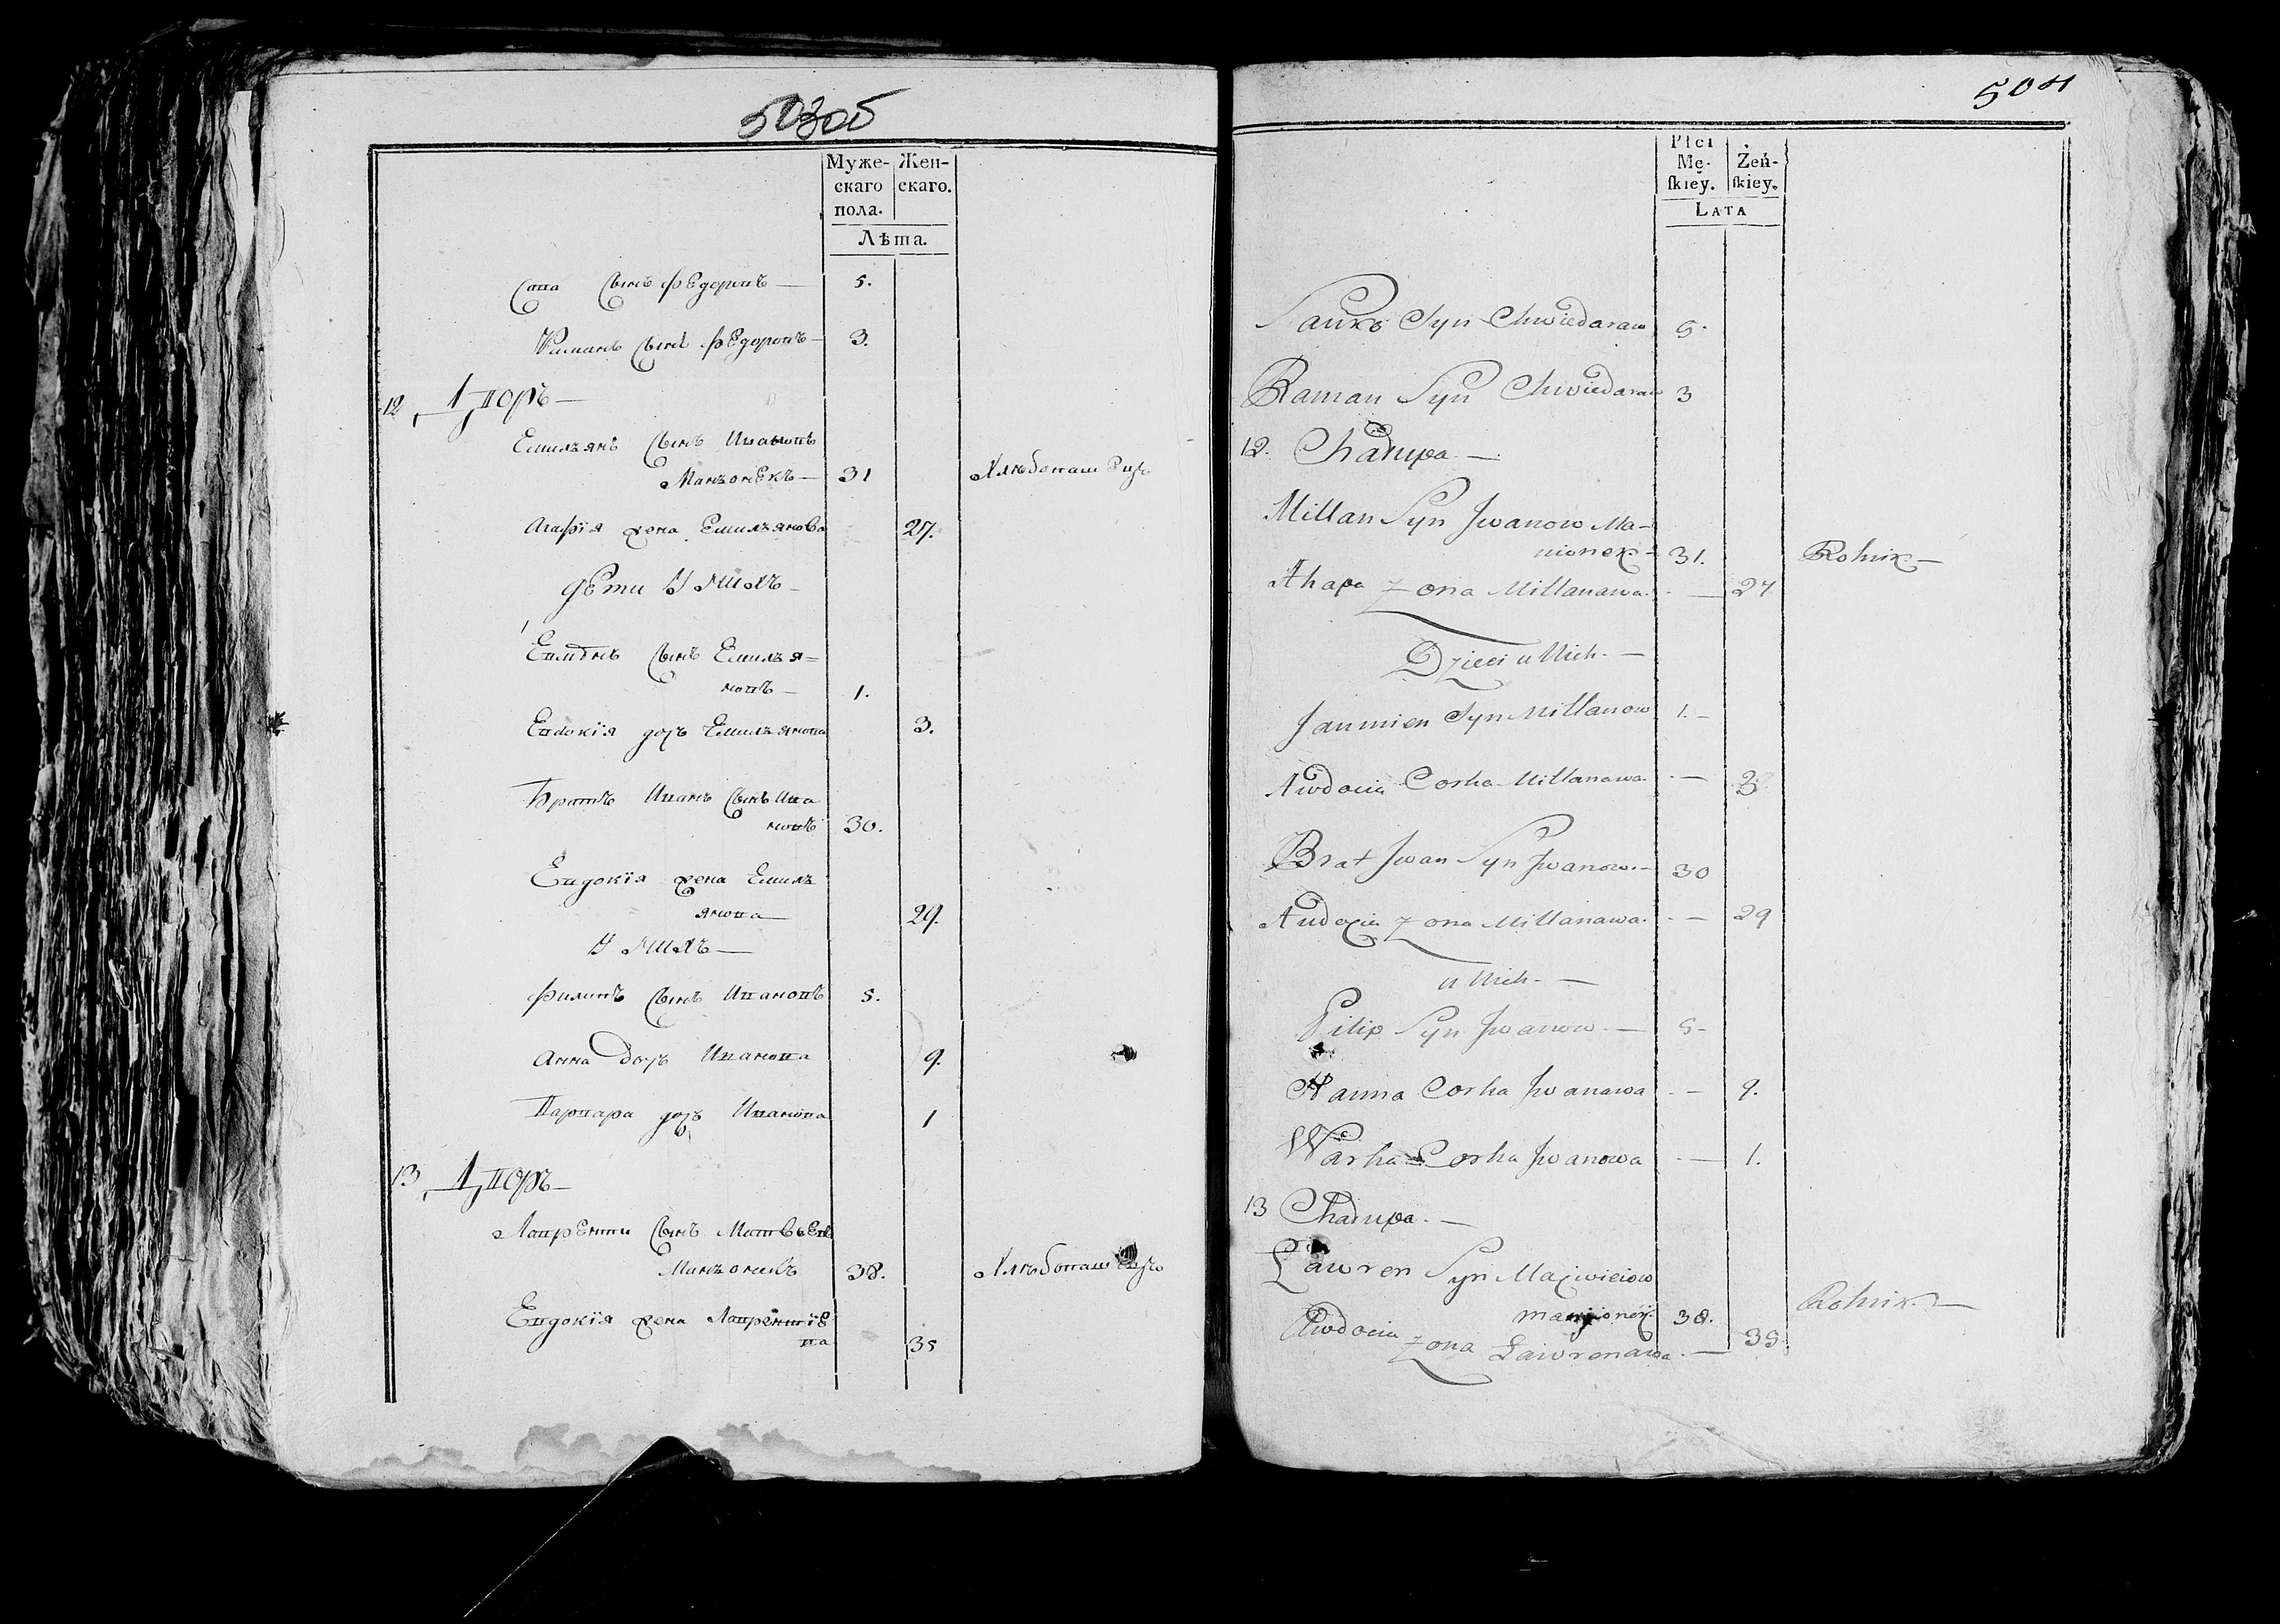 503об
Муже-
скаго
пола.
Жен-
скаго.
Лѣта.
Сава Сынъ Федоровъ — 5.
Раманъ Сынъ Федоровъ — 3.
12 Дворъ —
Емильянъ Сынъ Ивановъ
Манзонекъ — 31 Хлѣбопашецъ
Агафія жена Емильянова 27.
дети У нихъ —
Сынъ Емилья=
новъ — 1.
Евдокія дочь Емильянова 3.
Братъ Иванъ Сынъ Ива
новъ 30.
Евдокія жена Емиль
янова — 29.
У нихъ —
Филипъ Сынъ Ивановъ 5.
Анна дочь Иванова 9.
Варвара дочь Иванова 1
13 Дворъ —
Лаврентии Сынъ Матвѣевъ
38. Хлѣбопашецъ
Евдокія жена Лаврентіе
ва 35
504
Płci
Mę-
ſkiey.
Żeń-
ſkiey.
LATA
Syn Chwiedaraw 5.
Raman Syn Chwiedaraw 3
12. Chałupa. —
Millan Syn Jwanow Ma-
nionek - 31. Rolnik —
Ahapa Zona Millanawa. - — 27
Dzieci u Nich. —
Jaumien Syn Millanow 1. -
Awdocia Corka Millanawa. - — 3
Brat Jwan Syn Jwanow. - 30
Audocia Zona Millanawa. - — 29
u Nich. —
Pilip Syn Jwanow. — 5 -
Hanna Corka Jwanawa - — 9.
Warka Corka Jwanowa - — 1.
13 Chałupa. —
Ławren Syn Maciwieiow
manionek. 38. Rolnik. —
Awdocia Zona Ławrenawa. — 35.